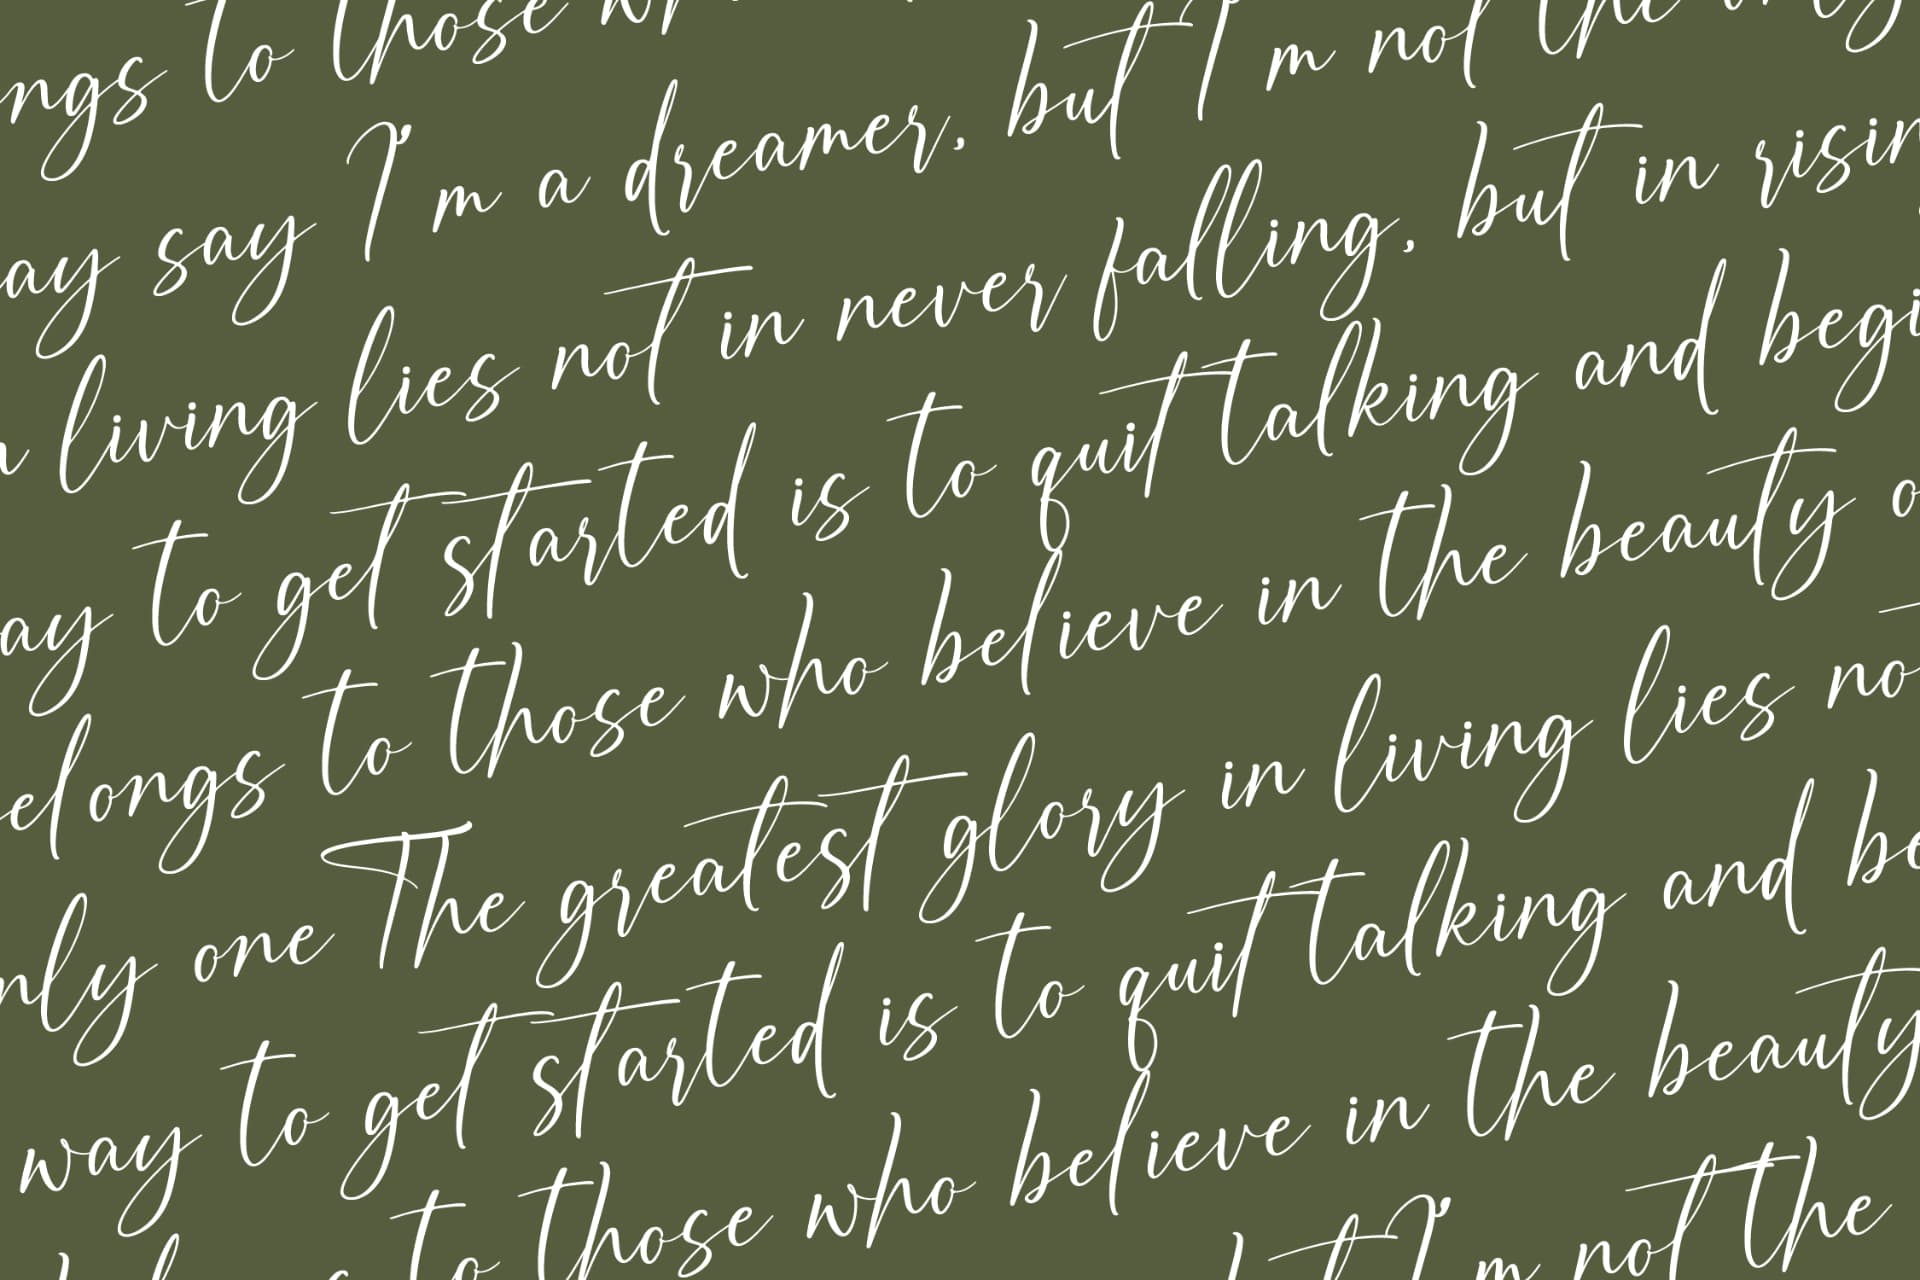 ngs to those
ay say I'm a dreamer, but I'm not the only
living lies not in never falling, but in risin
ay to get started is to quit talking and begi
elongs to those who believe in the beauty o
nly one The greatest glory in living lies not
way to get started is to quit talking and be
to those who believe in the beauty
I'm not the